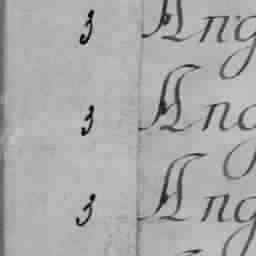 3 Ang
3 Ang
3 Ang